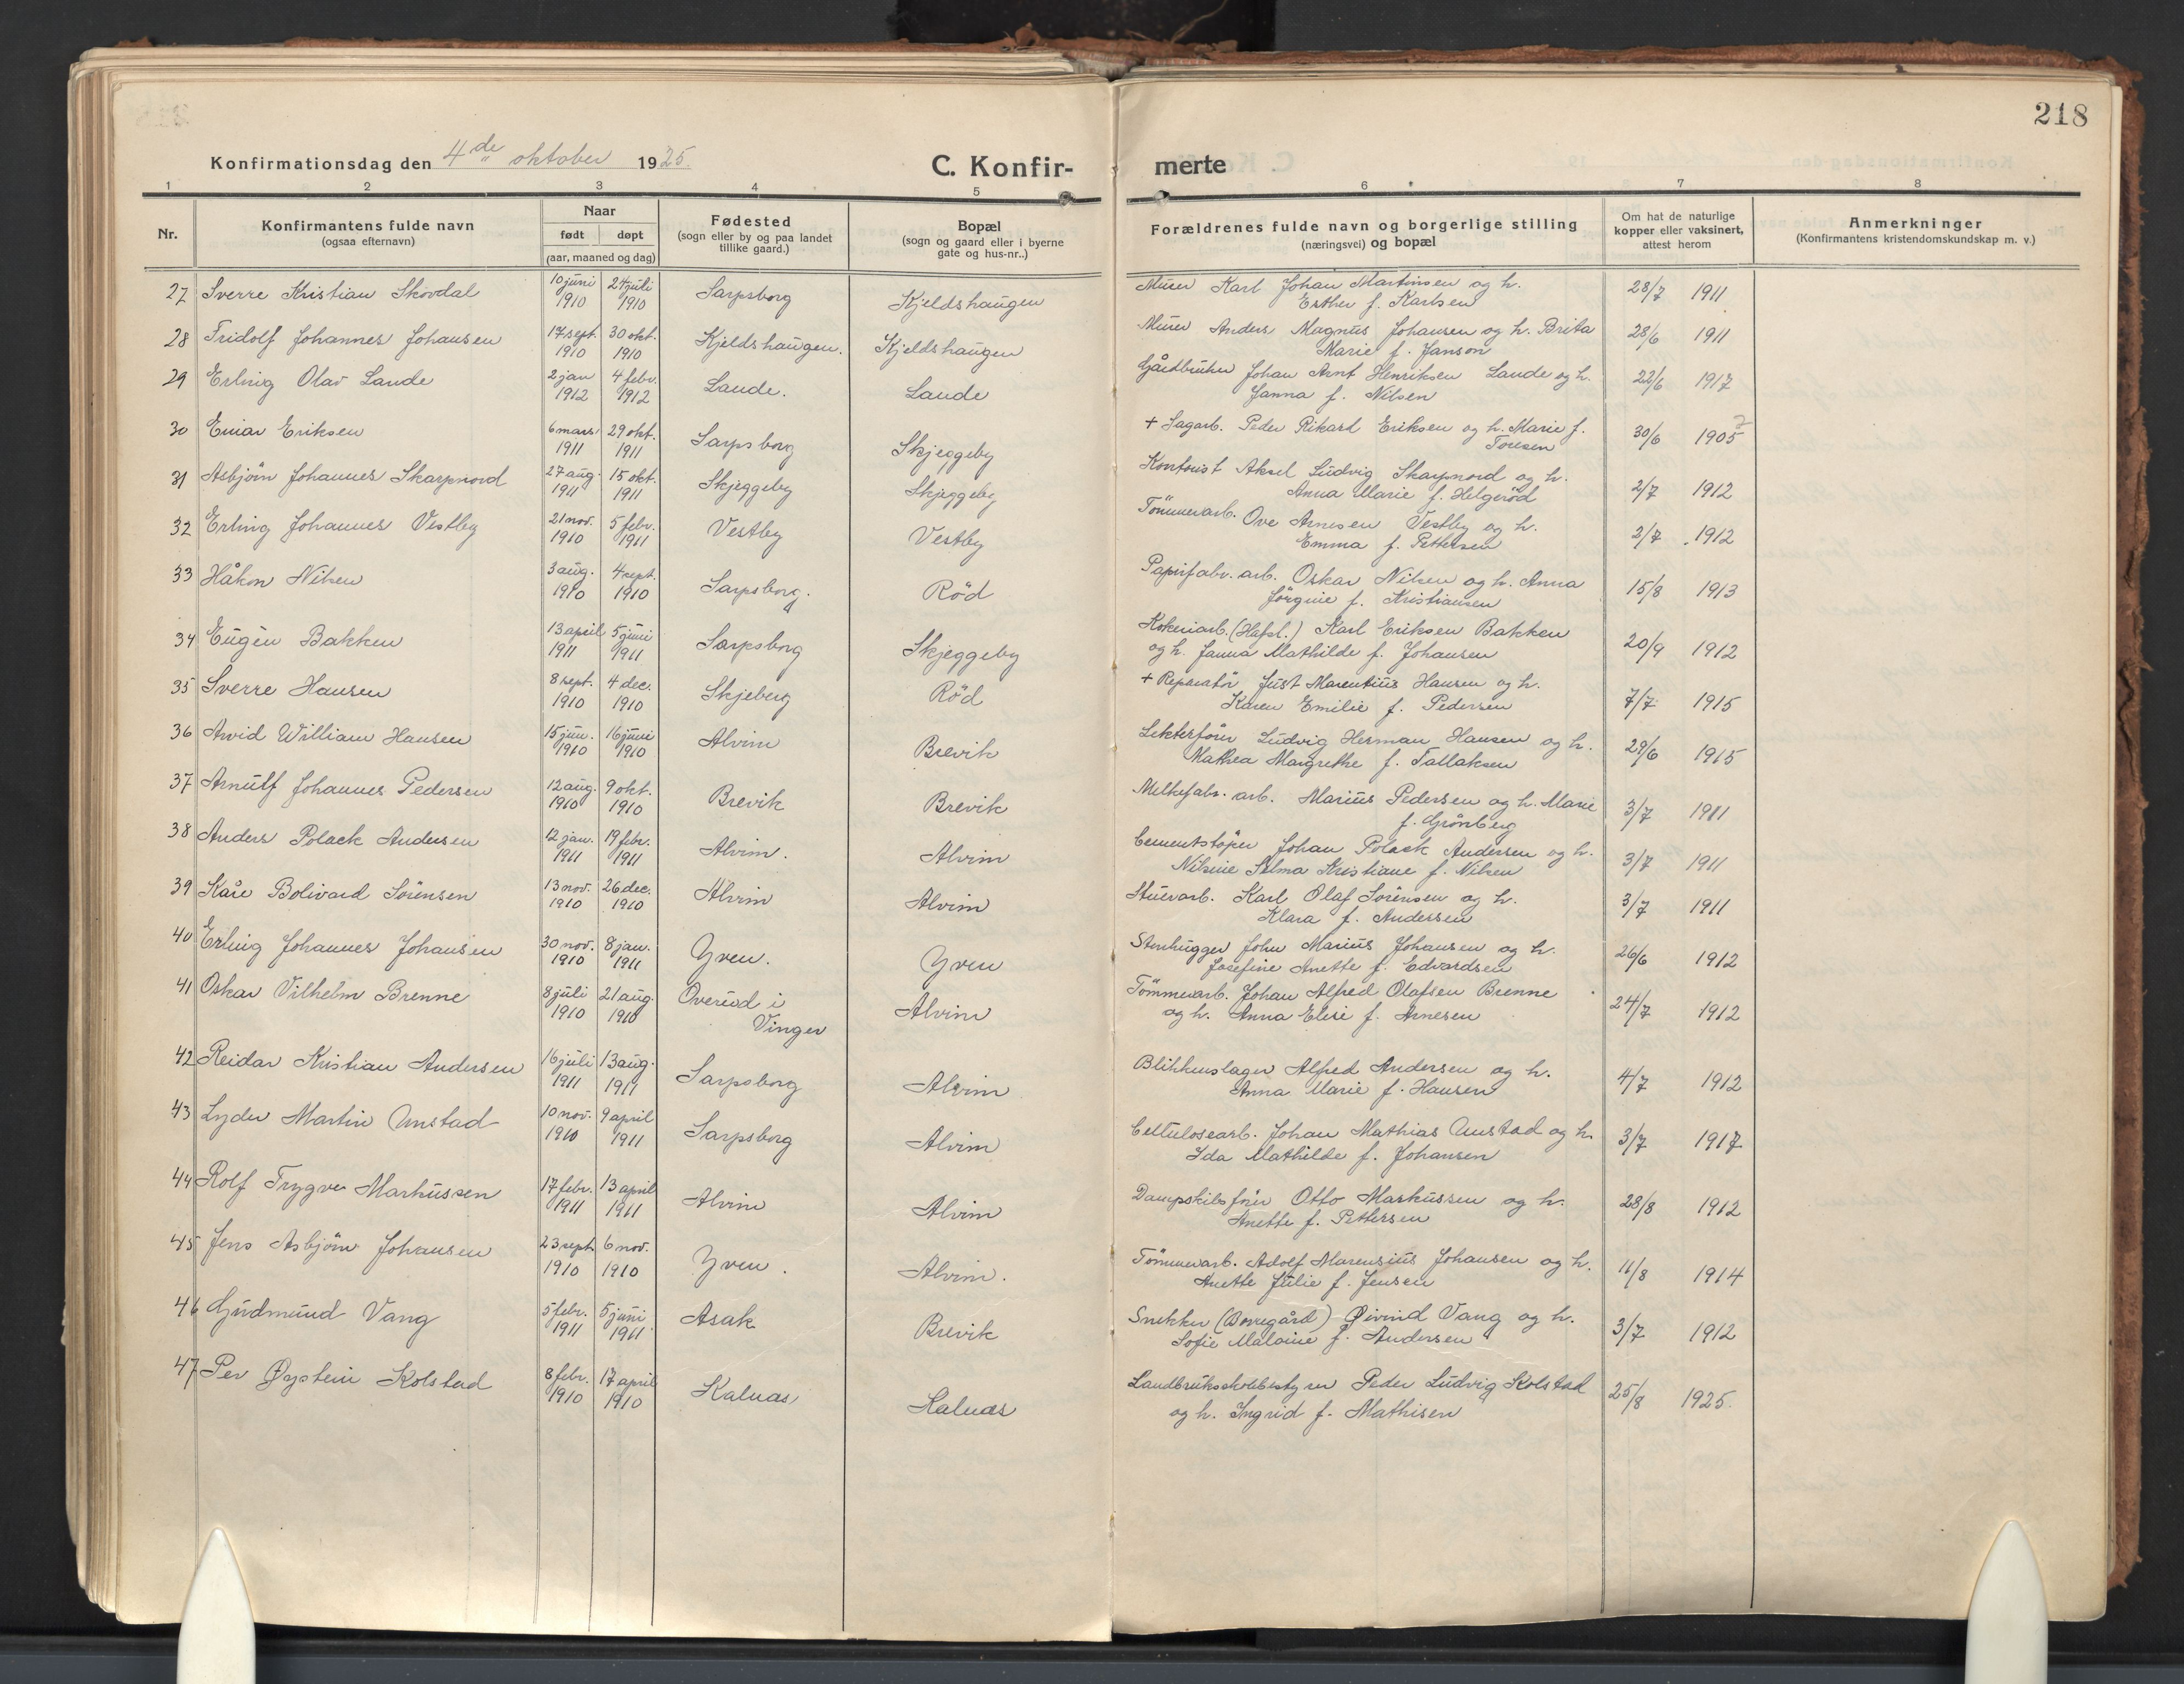 218
Konfirmationsdag den 4de oktober 1925.
C. Konfir-
merte
1 2 3 4 5 6 7 8
Nr.
Konfirmantens fulde navn
(ogsaa efternavn)
Naar
født døpt
(aar, maaned og dag)
Fødested
(sogn eller by og paa landet
tillike gaard.)
Bopæl
(sogn og gaard eller i byerne
gate og hus-nr..)
Forældrenes fulde navn og borgerlige stilling
(næringsvei) og bopæl
Om hat de naturlige
kopper eller vaksinert,
attest herom
Anmerkninger
(Konfirmantens kristendomskundskap m. v.)
27 Sverre Kristian Skovdal 10 juni 24 juli Sarpsborg Kjeldshaugen Murer Karl Johan Martinsen og h. 28/7 1911
1910 1910 Esther f. Karlsen
28 Fridolf Johannes Johansen 17 sept. 30 okt. Kjeldshaugen. Kjeldshaugen Murer Anders Magnus Johansen og h. Brita 28/6 1911
1910 1910 Marie f. Janson
29 Erling Olav Lande 2 jan 4 febr. Lande. Lande Gårdbruker Johan Arnt Henriksen Lande og h. 22/6 1917
1912 1912 Janna f. Nilsen
30 Einar Eriksen 6 mars 29 okt. Sarpsborg Skjeggeby + Sagarb. Peder Rikard Eriksen og h. Marie f. 30/6 1905
1911 1911 Toresen
31 Asbjörn Johannes Skarpnord 27 aug. 15 okt. Skjeggeby Skjeggeby Kontorist Aksel Ludvig Skarpnord og h. 2/7 1912
1911 1911 Anna Marie f. Helgeröd
32 Erling Johannes Vestby 21 nov. 5 febr. Vestby Vestby Tömmerarb. Ove Arnesen Vestby og h. 2/7 1912
1910 1911 Emma f. Pettersen
33 Håkon Nilsen 3 aug. 4 sept. Sarpsborg. Röd Papirfabr. arb. Oskar Nilsen og h. Anna 15/8 1913
1910 1910 Jörgine f. Kristiansen
34 Eugèn Bakken 13 april 5 juni Sarpsborg Skjeggeby Kokeriarb. (Hafsl.) Karl Eriksen Bakken 20/9 1912
1911 1911 og h. Janna Mathilde f. Johansen
35 Sverre Hansen 8 sept. 4 dec. Skjeberg Röd + Reparatör Just Marentius Hansen og h. 7/7 1915
1910 1910 Karen Emilie f. Pedersen
36 Arvid William Hansen 15 jan. 16 juni Alvim Brevik Lekterförer Ludvig Herman Hansen og h. 29/6 1915
1910 1910 Mathea Margrethe f. Tallaksen
37 Arnulf Johannes Pedersen 12 aug. 9 okt. Brevik Brevik Melkefabr. arb. Marius Pedersen og h. Marie 3/7 1911
1910 1910 f. Grönberg
38 Anders Polack Andersen 12 jan. 19 febr. Alvim. Alvim Cementstöper Johan Polack Andersen og h. 3/7 1911
1911 1911 Nilsine Selma Kristiane f. Nilsen
39 Kåre Bolivard Sörensen 13 nov. 26 dec. Alvim Alvim Stuerarb. Karl Olaf Sörensen og h. 3/7 1911
1910 1910 Klara f. Andersen
40 Erling Johannes Johansen 30 nov. 8 jan. Yven. Yven Stenhugger John Marius Johansen og h. 26/6 1912
1910 1911 Josefine Anette f. Edvardsen
41 Oskar Vilhelm Brenne 8 juli 21 aug. Overud i Alvim Tömmerarb. Johan Alfred Olafsen Brenne 24/7 1912
1910 1910 Vinger og h. Anna Elise f. Arnesen
42 Reidar Kristian Andersen 16 juli 13 aug. Sarpsborg Alvim Blikkenslager Alfred Andersen og h. 4/7 1912
1911 1911 Anna Marie f. Hansen
43 Lyder Martin Unstad 10 nov. 9 april Sarpsborg Alvim Cellulosearb. Johan Mathias Unstad og h. 3/7 1917
1910 1911 Ida Mathilde f. Johansen
44 Rolf Trygve Markussen 17 febr. 13 april Alvim Alvim Dampskibsförer Otto Markussen og h. 28/8 1912
1911 1911 Anette f. Pettersen
45 Jens Asbjörn Johansen 23 sept. 6 nov. Yven. Alvim. Tömmerarb. Adolf Marensius Johansen og h. 11/8 1914
1910 1910 Anette Julie f. Jensen
46 Gudmund Vang 5 febr. 5 juni Asak Brevik Snekker (Borregård) Øivind Vang og h. 3/7 1912
1911 1911 Sofie Malaine f. Andersen
47 Per Øystein Kolstad 8 febr. 17 april Kalnæs Kalnæs Landbruksskolebestyrer Peder Ludvig Kolstad 25/8 1925.
1910 1910 og h. Ingrid f. Mathisen